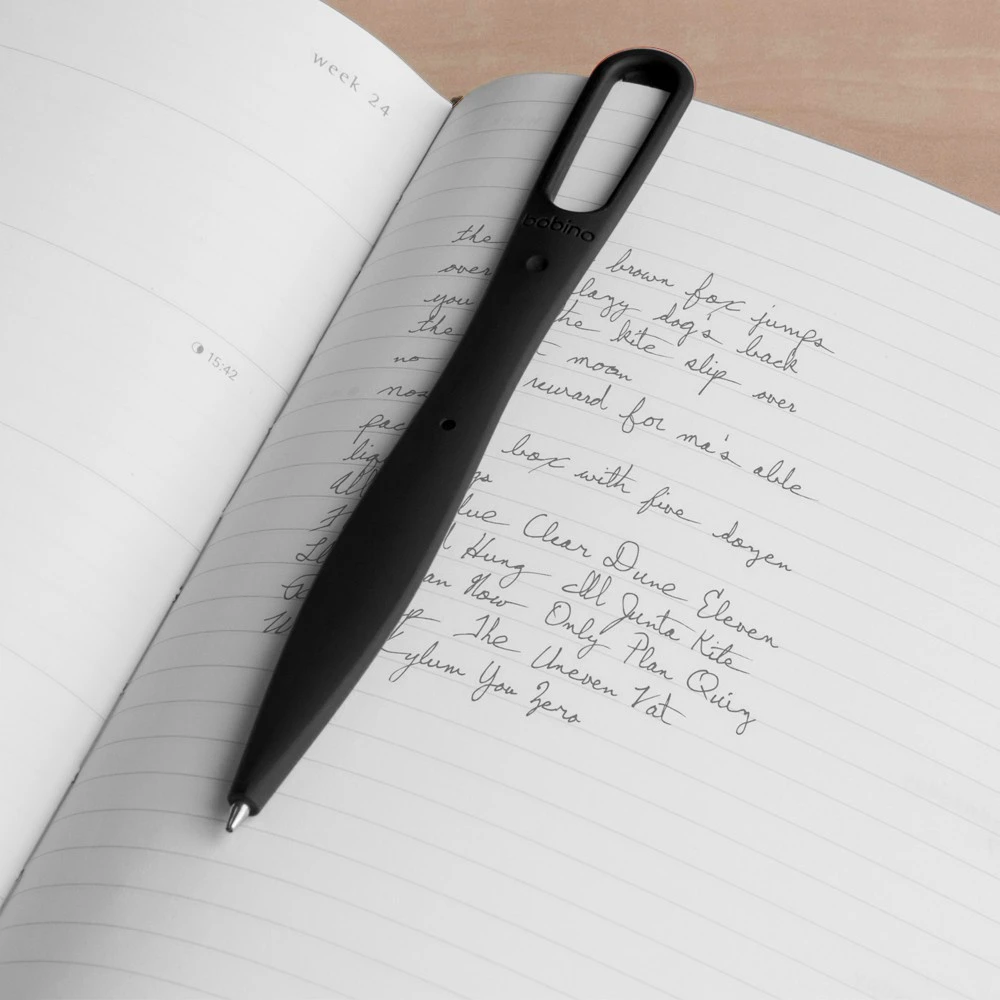 week 24
15:42
bobino
the brown fox jumps
over lazy dog's back
you the kite slip over
the moon
no reward for ma's able
nos
pac box with five dozen
liq gs
All lue Clear Dune Eleven
Hung All Junta Kite
an Now Only Plan Quiz
The Uneven Vat
Xylum You Zero